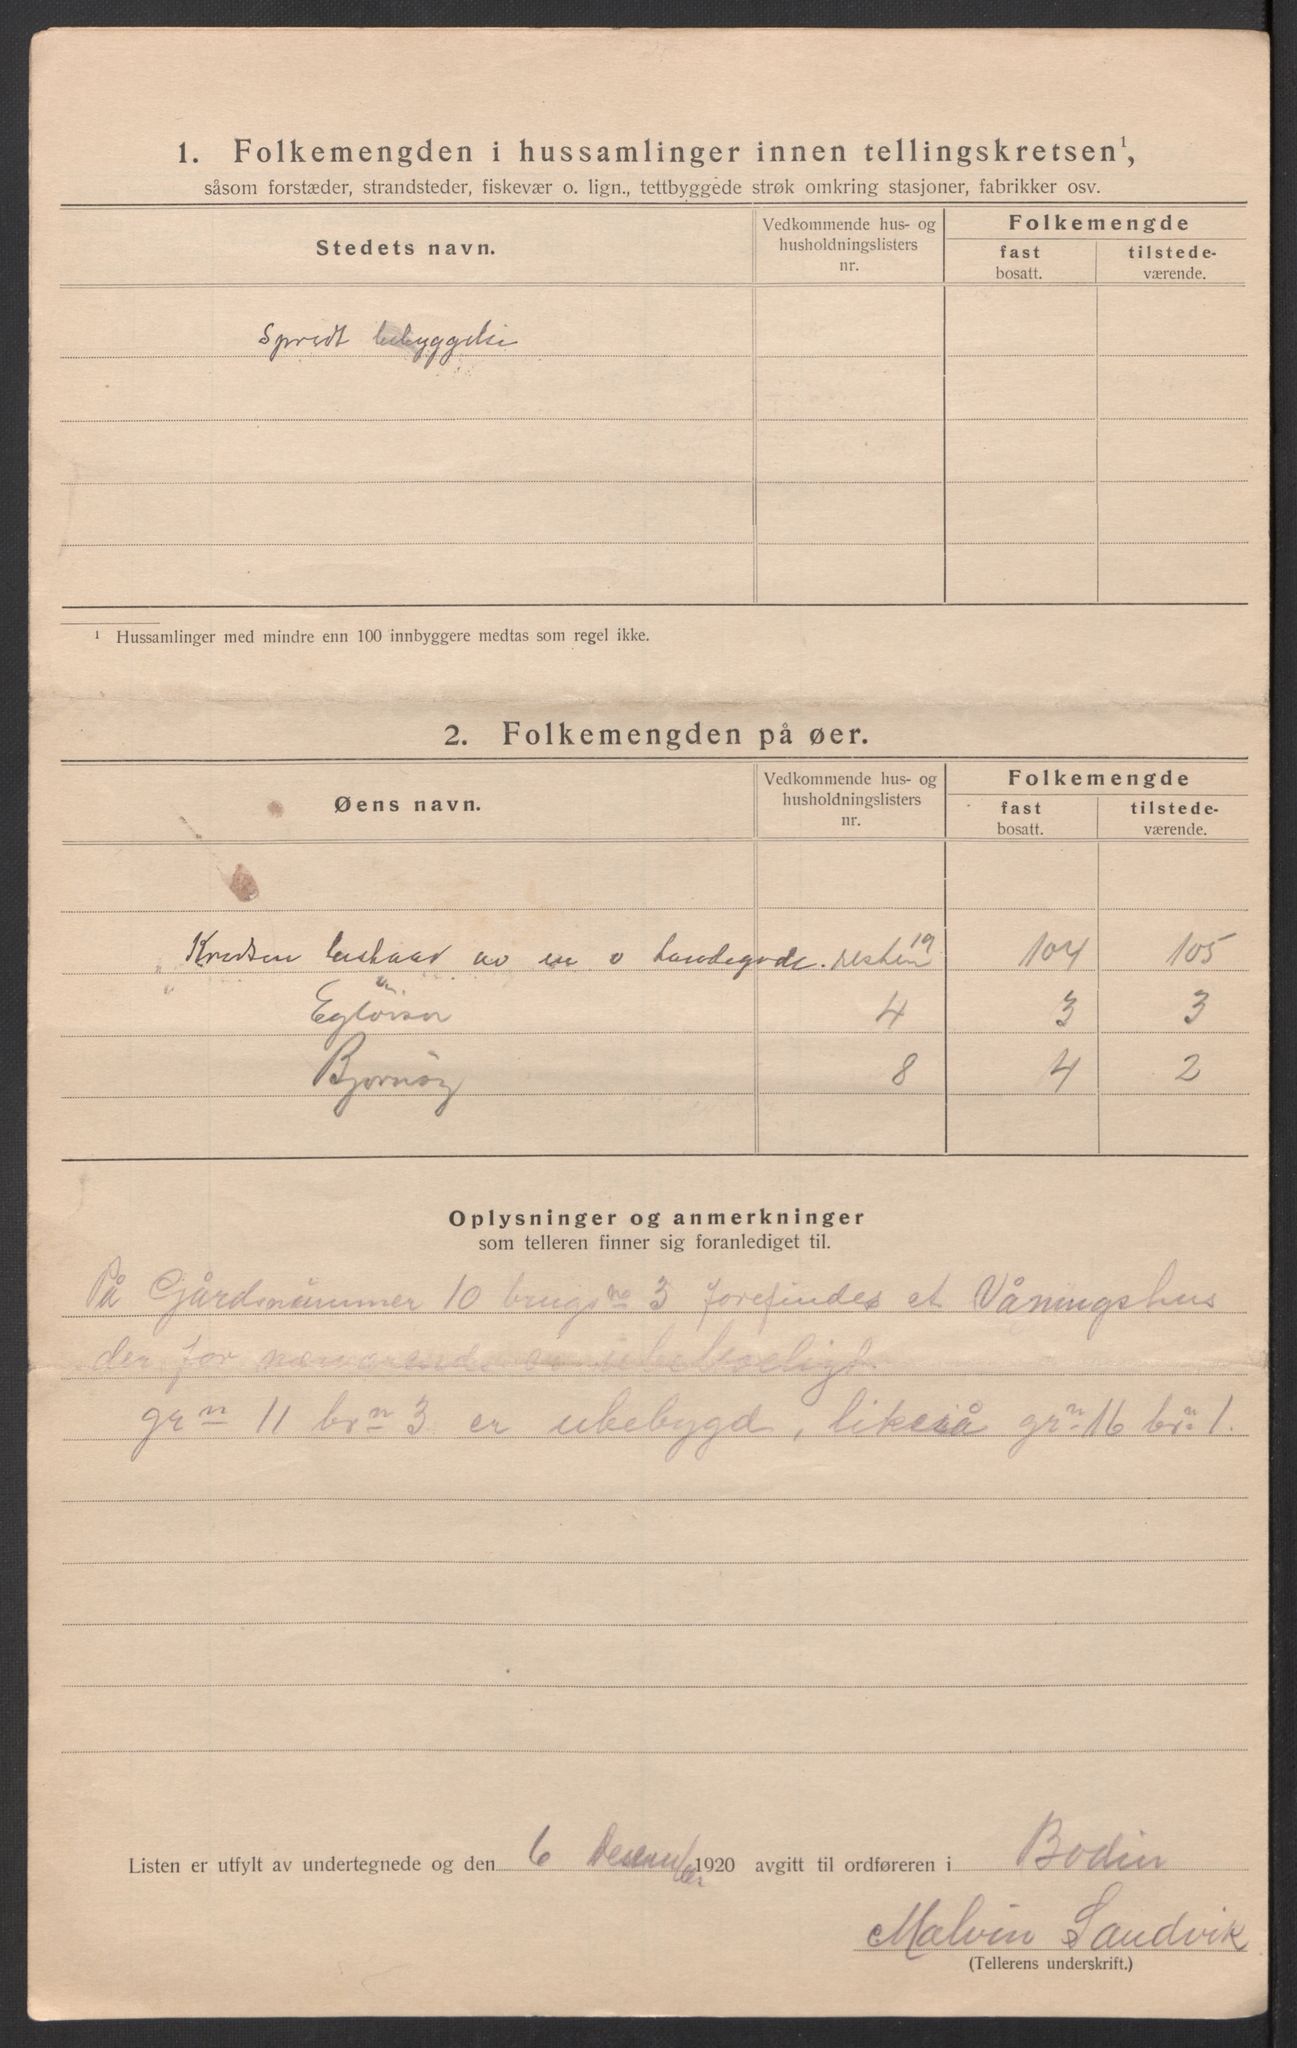 1. Folkemengden i hussamlinger innen tellingskretsen¹,
såsom forstæder, strandsteder, fiskevær o. lign., tettbyggede strøk omkring stasjoner, fabrikker osv.
Stedets navn.
Vedkommende hus- og husholdningslisters nr.
Folkemengde
fast bosatt.
tilstede-værende.
Spredt bebyggelse
¹ Hussamlinger med mindre enn 100 innbyggere medtas som regel ikke.
2. Folkemengden på øer.
Øens navn.
Vedkommende hus- og husholdningslisters nr.
Folkemengde
fast bosatt.
tilstede-værende.
Kredsen bestaar av en ø resten 19 104 105
4 3 3
Bjørnøy 8 4 2
Oplysninger og anmerkninger
som telleren finner sig foranlediget til.
På Gårdsnummer 10 brugsno 3 forefindes et Våningshus
der for nærværende er ubeboeligt
grn 11 brn 3 er ubebygd, likeså grn 16 brn 1.
Listen er utfylt av undertegnede og den 6 Desember 1920 avgitt til ordføreren i Bodin
Malvin Sandvik
(Tellerens underskrift.)